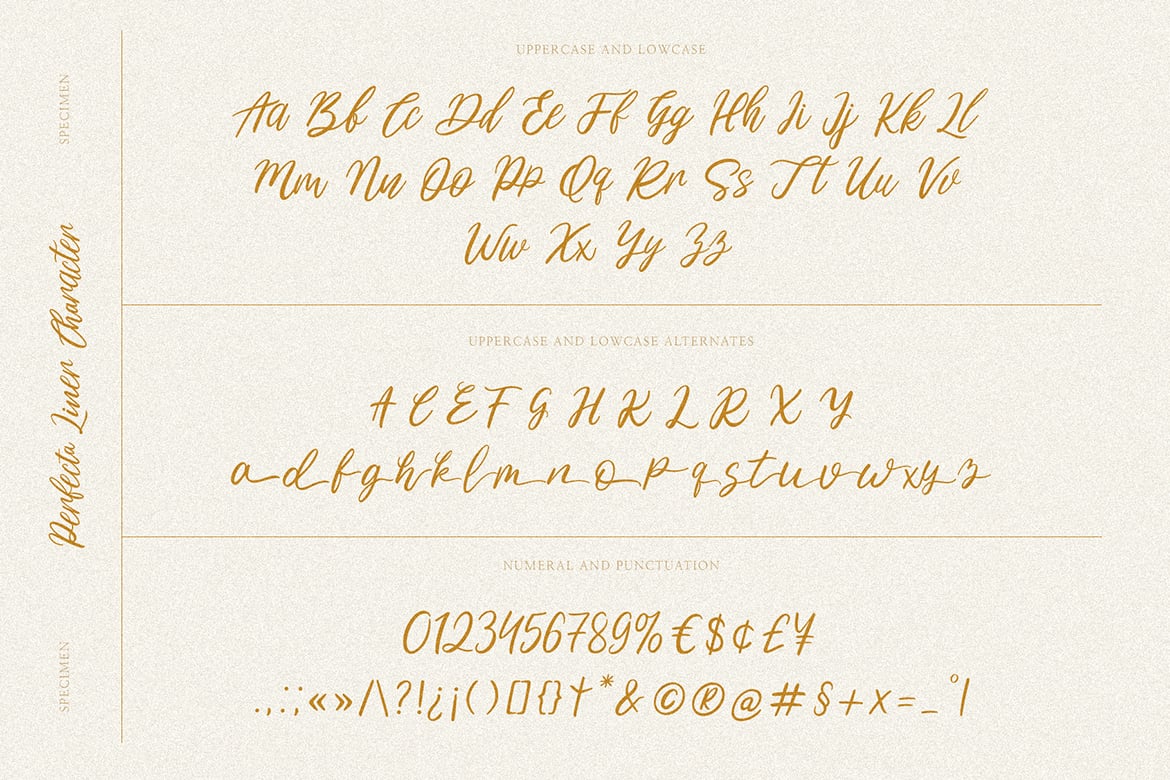 SPECIMEN
Perfecta Liner Character
SPECIMEN
UPPERCASE AND LOWCASE
Aa Bb Cc Dd Ee Ff Gg Hh Ii Jj Kk Ll
Mm Nn Oo Pp Qq Rr Ss Tt Uu Vv
Ww Xx Yy Zz
UPPERCASE AND LOWCASE ALTERNATES
A C E F G H K L R X Y
a d f g h k l m n o p q s t u v w x y z
NUMERAL AND PUNCTUATION
0123456789%€$¢£¥
.,:;«»/\?!¿¡()[]{}†*&©®@#§+x=_°|